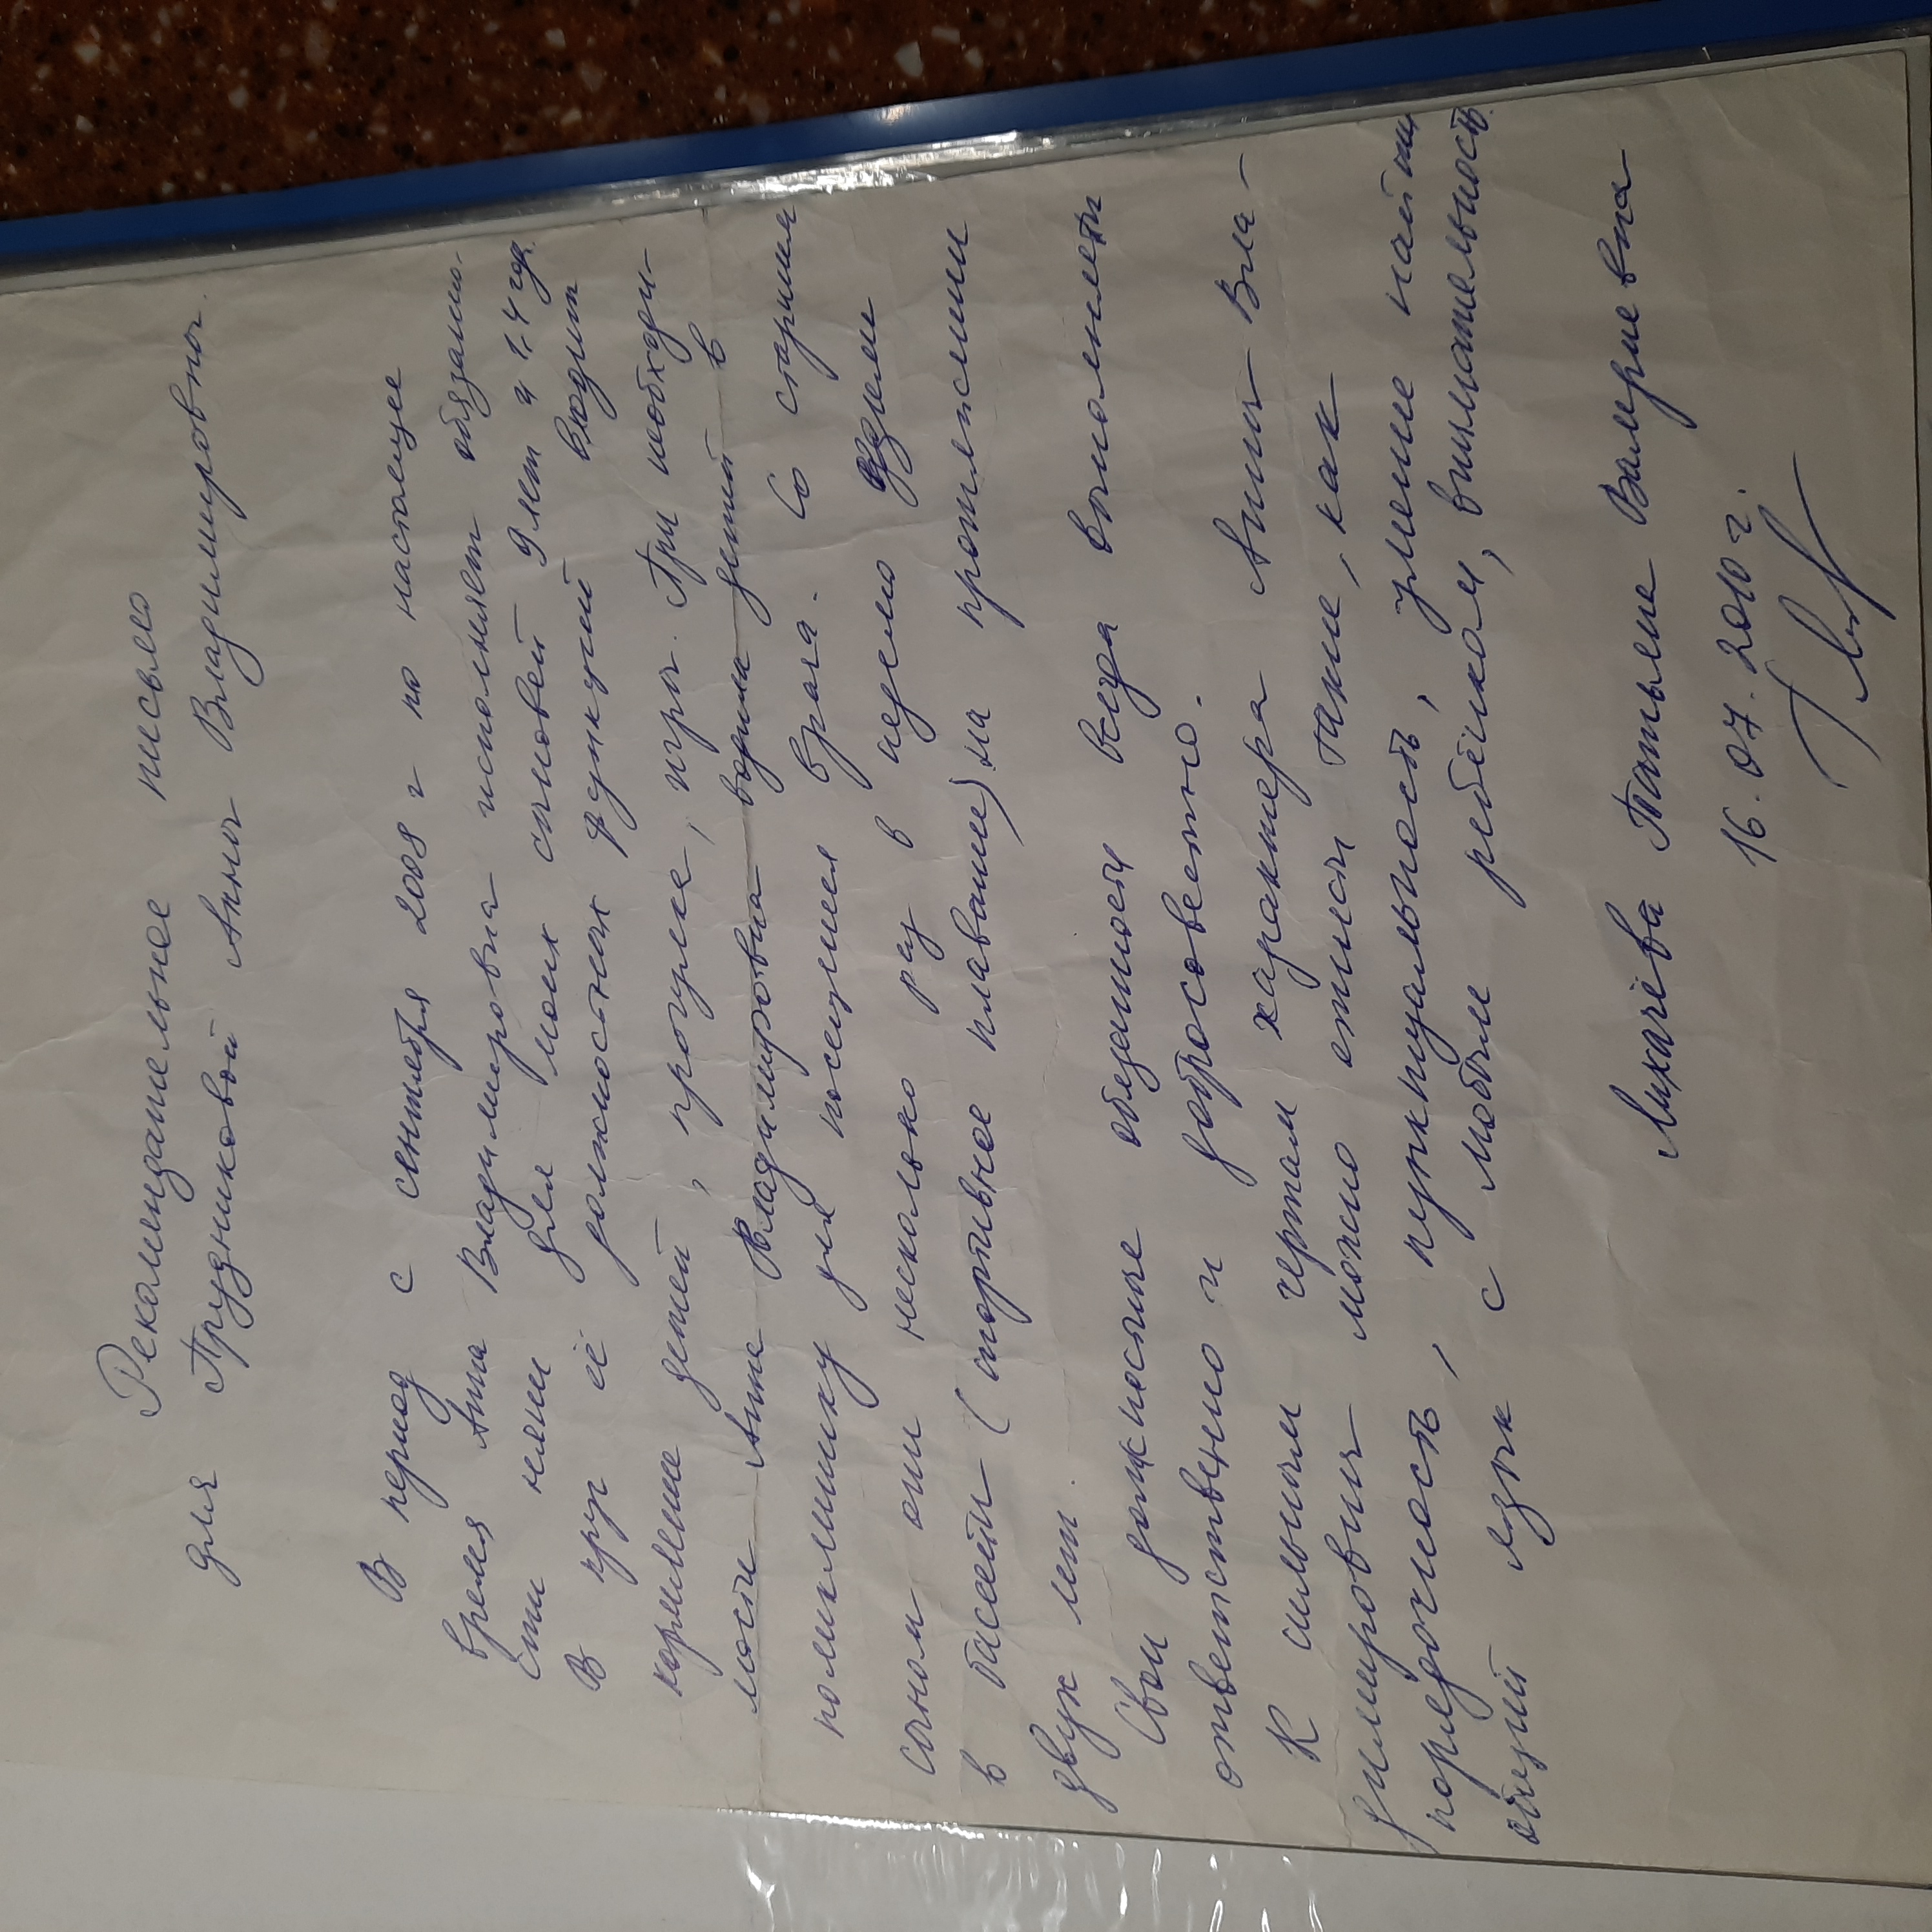 Рекомендательное письмо
для Прудниковой Анны Владимировны.
В период с сентября 2008 г по настоящее
время Анна Владимировна исполняет обязанно-
сти няни для моих сыновей 9 лет и 1,4 год.
В круг её должностных функций входит
кормление детей, прогулке, игры. При необходи-
мости Анна Владимировна водила детей в
поликлинику для посещения врача. Со старшим
сыном они несколько раз в неделю ездили
в бассейн (спортивное плавание) на протяжении
двух лет.
Свои должностные обязанности всегда выполняет
ответственно и добросовестно.
К сильным чертам характера Анны Вла-
димировны можно отнести такие, как
порядочность, пунктуальность, умение найти
общий язык с любым ребёнком, внимательность.
Лихачёва Татьяна Валериевна
16.07.2010 г.